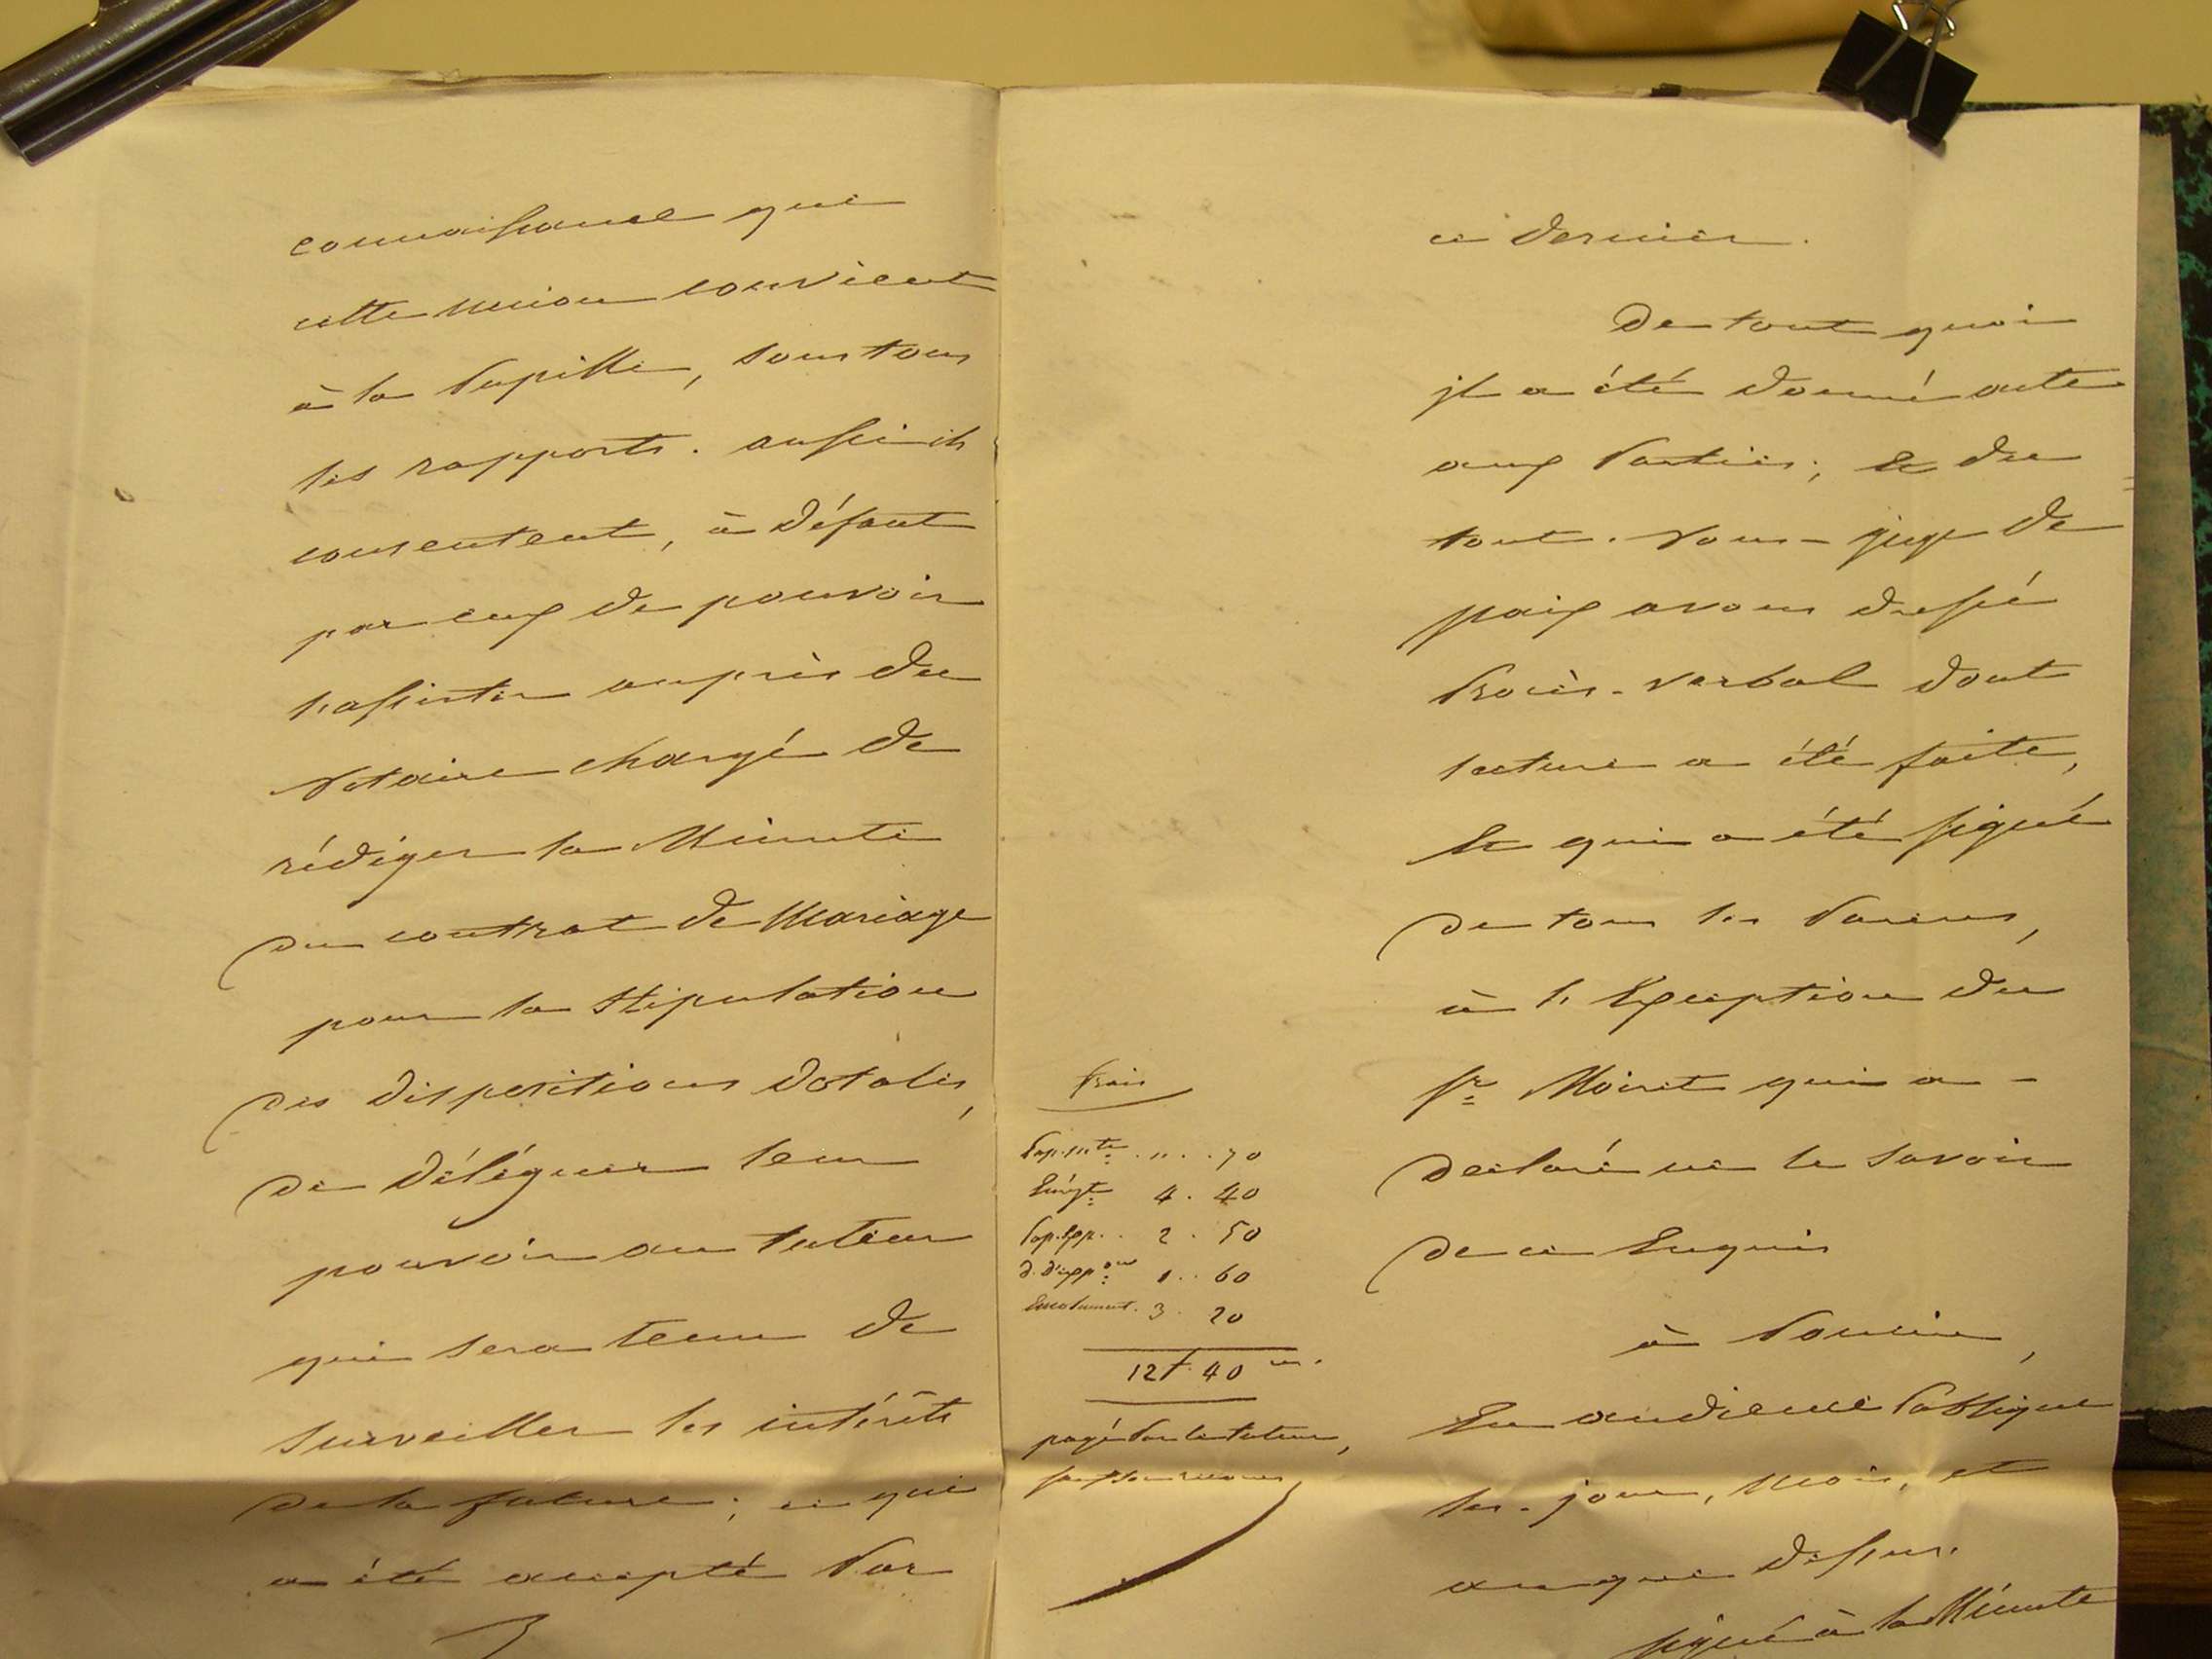 connaissance que
cette union convient
à la Pupille, sous tous
les rapports. aussi ils
consentent, à défaut
par eux de pouvoir
l'assister auprès du
Notaire chargé de
rédiger la Minute
du contrat de Mariage
pour la Stipulation
des dispositions dotales,
de déléguer leur
pouvoir au tuteur
qui sera tenu de
surveiller les intérêts
de la future; ce qui
a été accepté Par
ce dernier.
De tout quoi
il a été donné acte
aux Parties; Et du
tout. Nous - juge de
paix avons dressé
Procès-verbal dont
lecture a été faite,
Et qui a été signé
de tous les Parens,
à l'Exception du
Sr. Moinet qui a -
déclaré ne le savoir
de ce Enquis
à
En audience Publique
les - jour, mois, et
an que dessus.
signé à la Minute
frais
Pap. mte. " . 70
Enregt. 4. 40
Pap. Exp. 2. 50
d. d'expon. 1. 60
Emolument. 3. 20
12f. 40 cm.
payé Par le tuteur,
sauf son recours